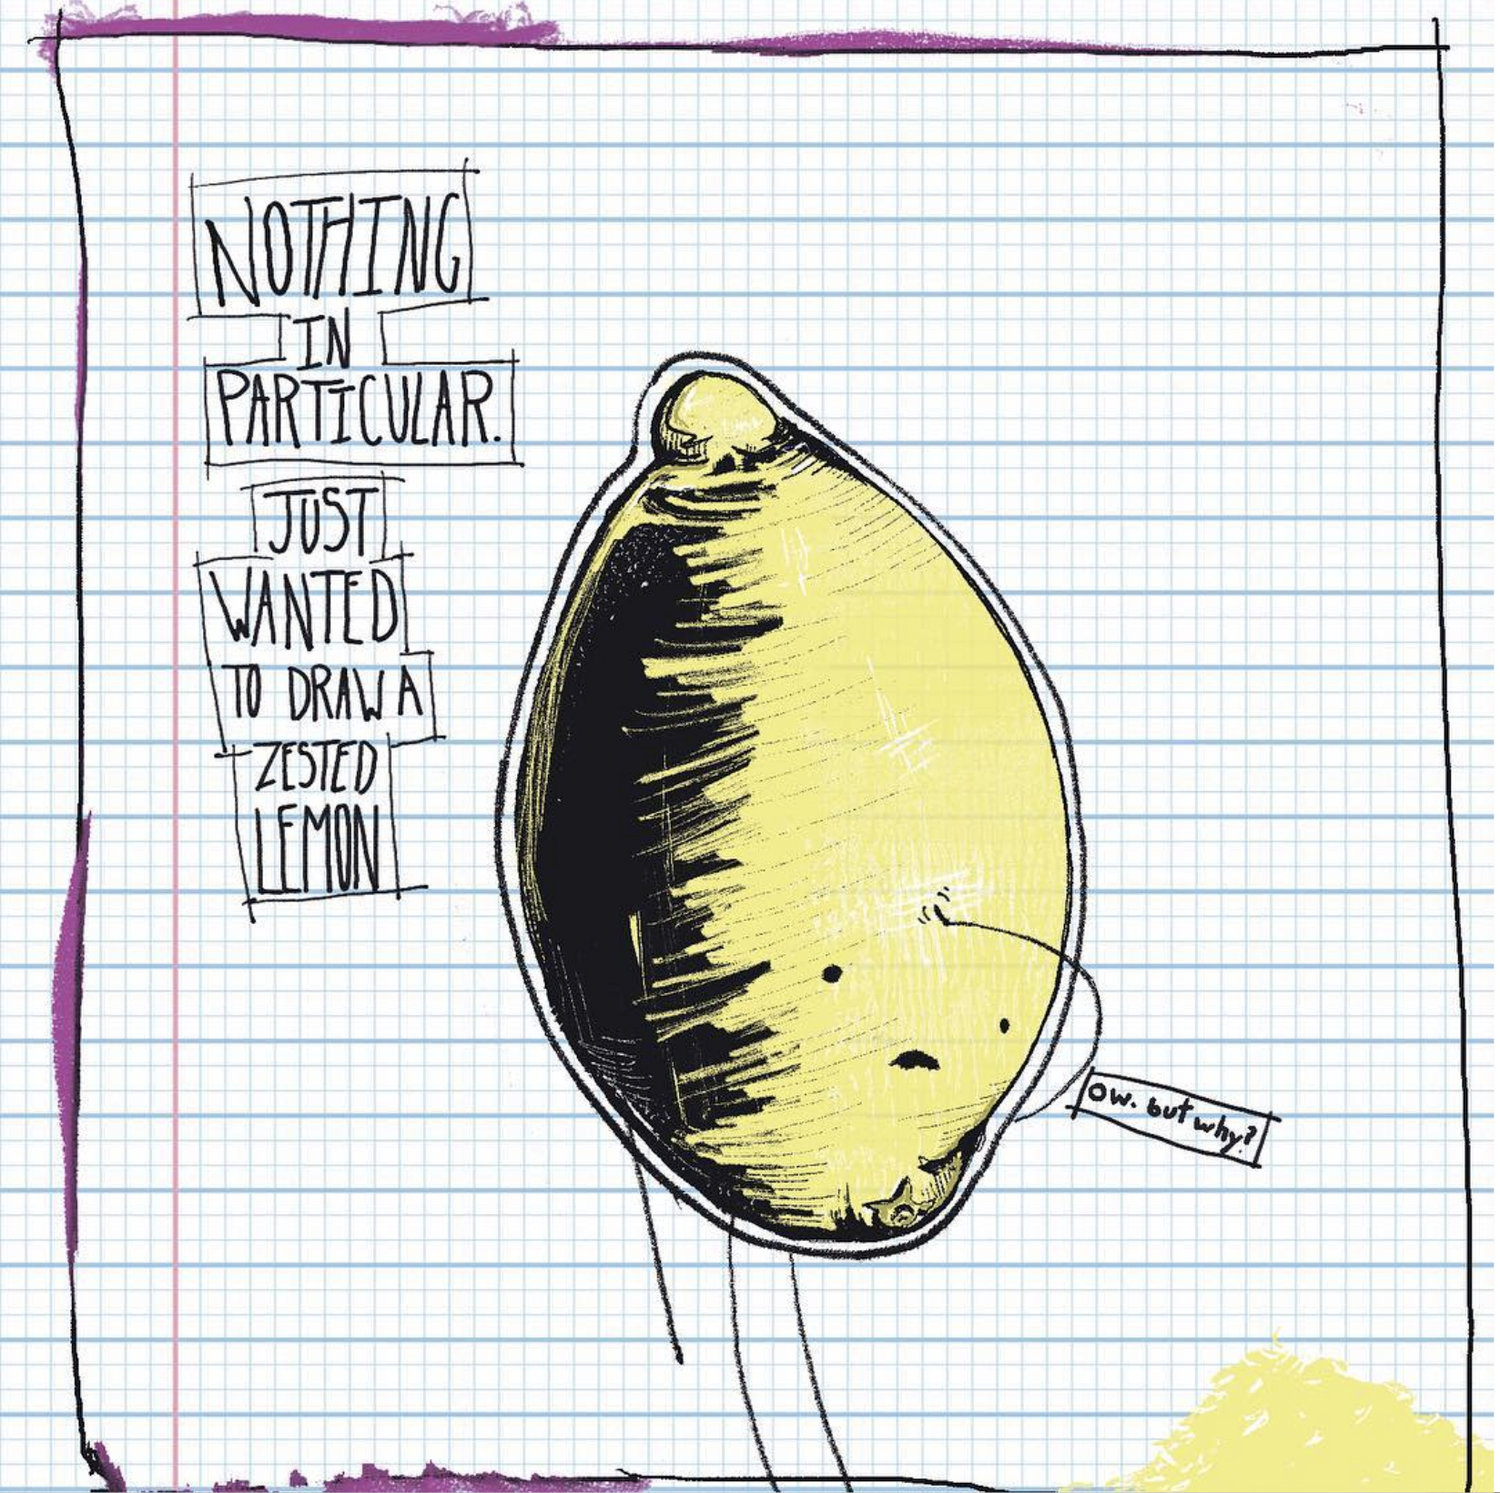 NOTHING
IN
PARTICULAR.
JUST
WANTED
TO DRAW A
ZESTED
LEMON
OW. but why?